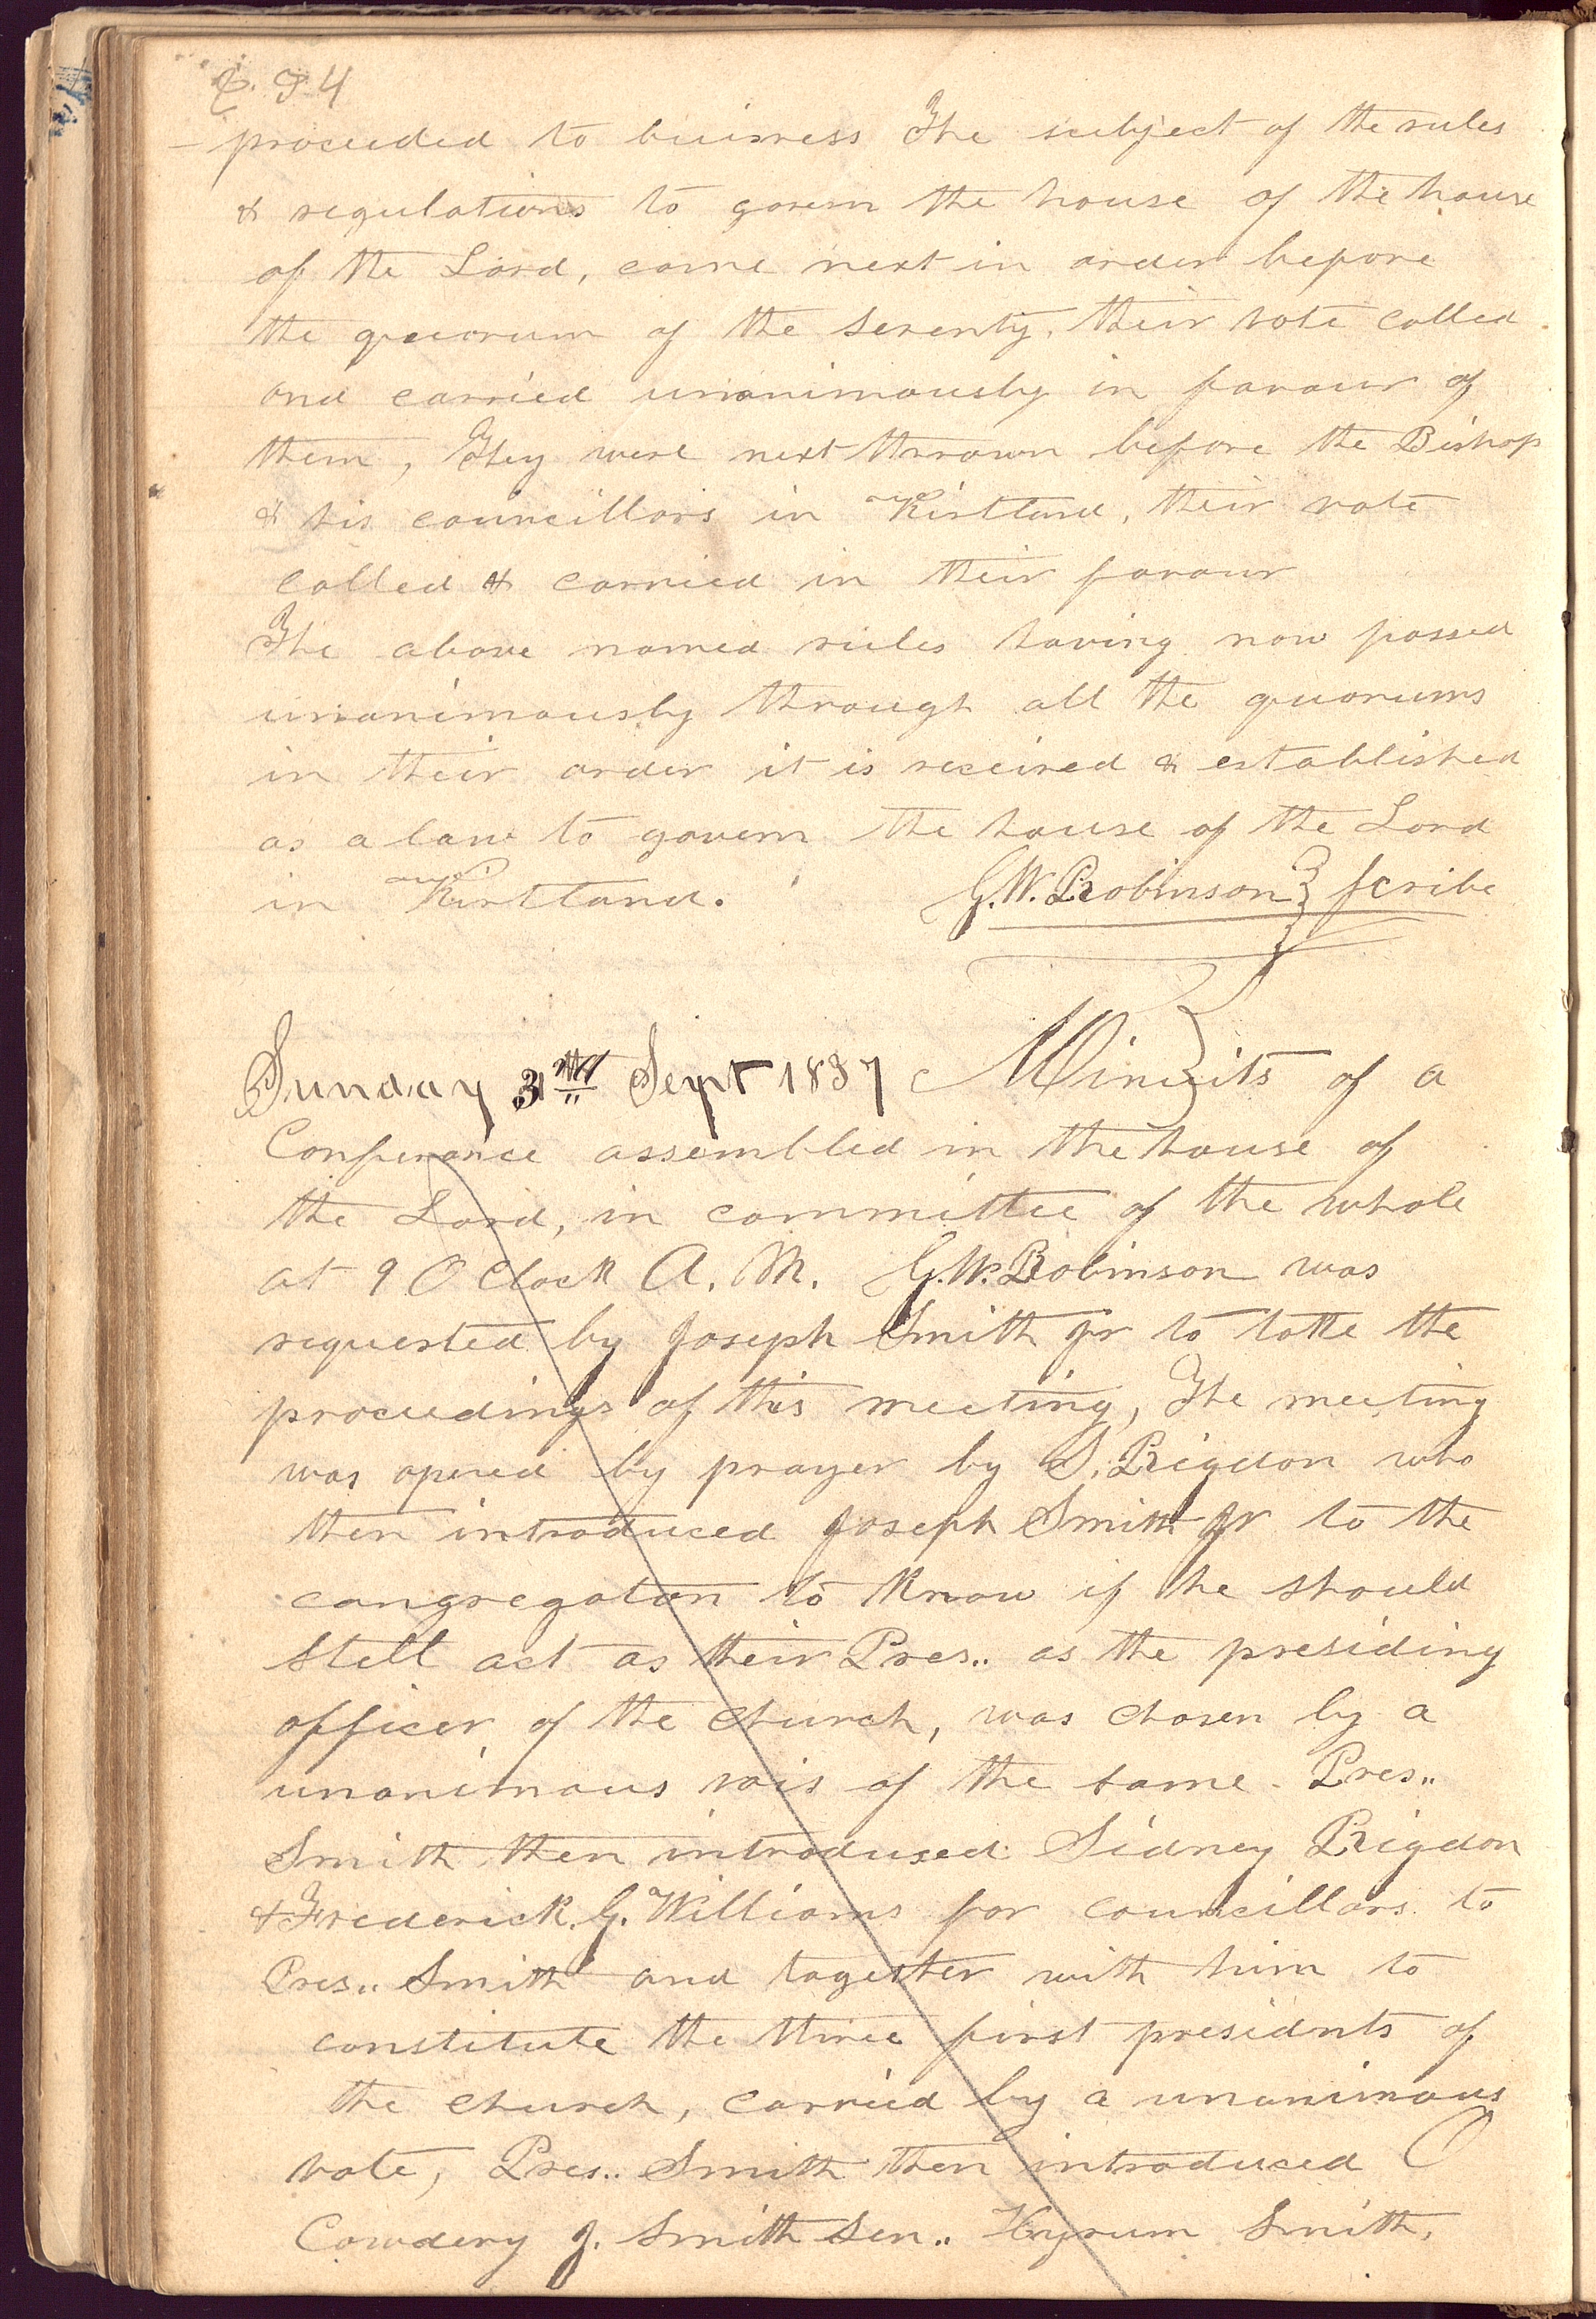 234
proceeded to buisness The subject of the rules
& regulations to govern the house of the house
of the Lord, came next in order before
the quorum of the Seventy, their vote called
and carried unanimously in favour of
them, They were next thrown before the Bishop
& his councillors in Kirtland, their vote
called & carried in their favour
The above named rules having now passed
unanimously through all the quorums
in their order it is received & established
as a law to govern the house of the Lord
in Kirtland. G. W. Robinson } Scribe
Sunday 3rd Sept 1837 Minuits of a
Conferance assembled in the house of
the Lord, in committee of the whole
at 9 O Clock A. M. G. W. Robinson was
requested by Joseph Smith Jr to take the
proceedings of this meeting, The meeting
was opened by prayer by S. Rigdon who
then introduced Joseph Smith Jr to the
congregation to know if he should
still act as their Pres.. as the presiding
officer of the church, was chosen by a
unanimous vois of the same. Pres..
Smith then introdused Sidney Rigdon
& Frederick. G. Williams for councillors to
Pres.. Smith and together with him to
constitute the three first presidnts of
the church, carried by a unanimous
vote, Pres.. Smith then introduced O
Cowdery J. Smith Sen.. Hyrum Smith,